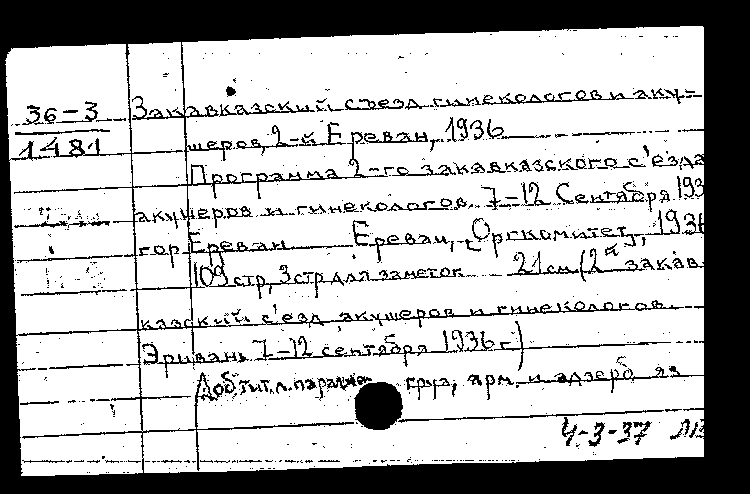 Закавказский съезд гинекологов и аку=
36-3
1481
шеров, 2-й Ереван, 1936
Программа 2-го закавказского с'езда
акушеров и гинекологов. 7-12 Сентября 193
гор Ереван Ереван, [Оргкомитет], 1936
109 стр, 3 стр для заметок 21 см (2й закав
казский с'езд акушеров и гинекологов.
Эривань 7-12 сентября 1936 г.)
(Доб. тит. л. паралл. груз, арм. и адзерб яз
4-3-37